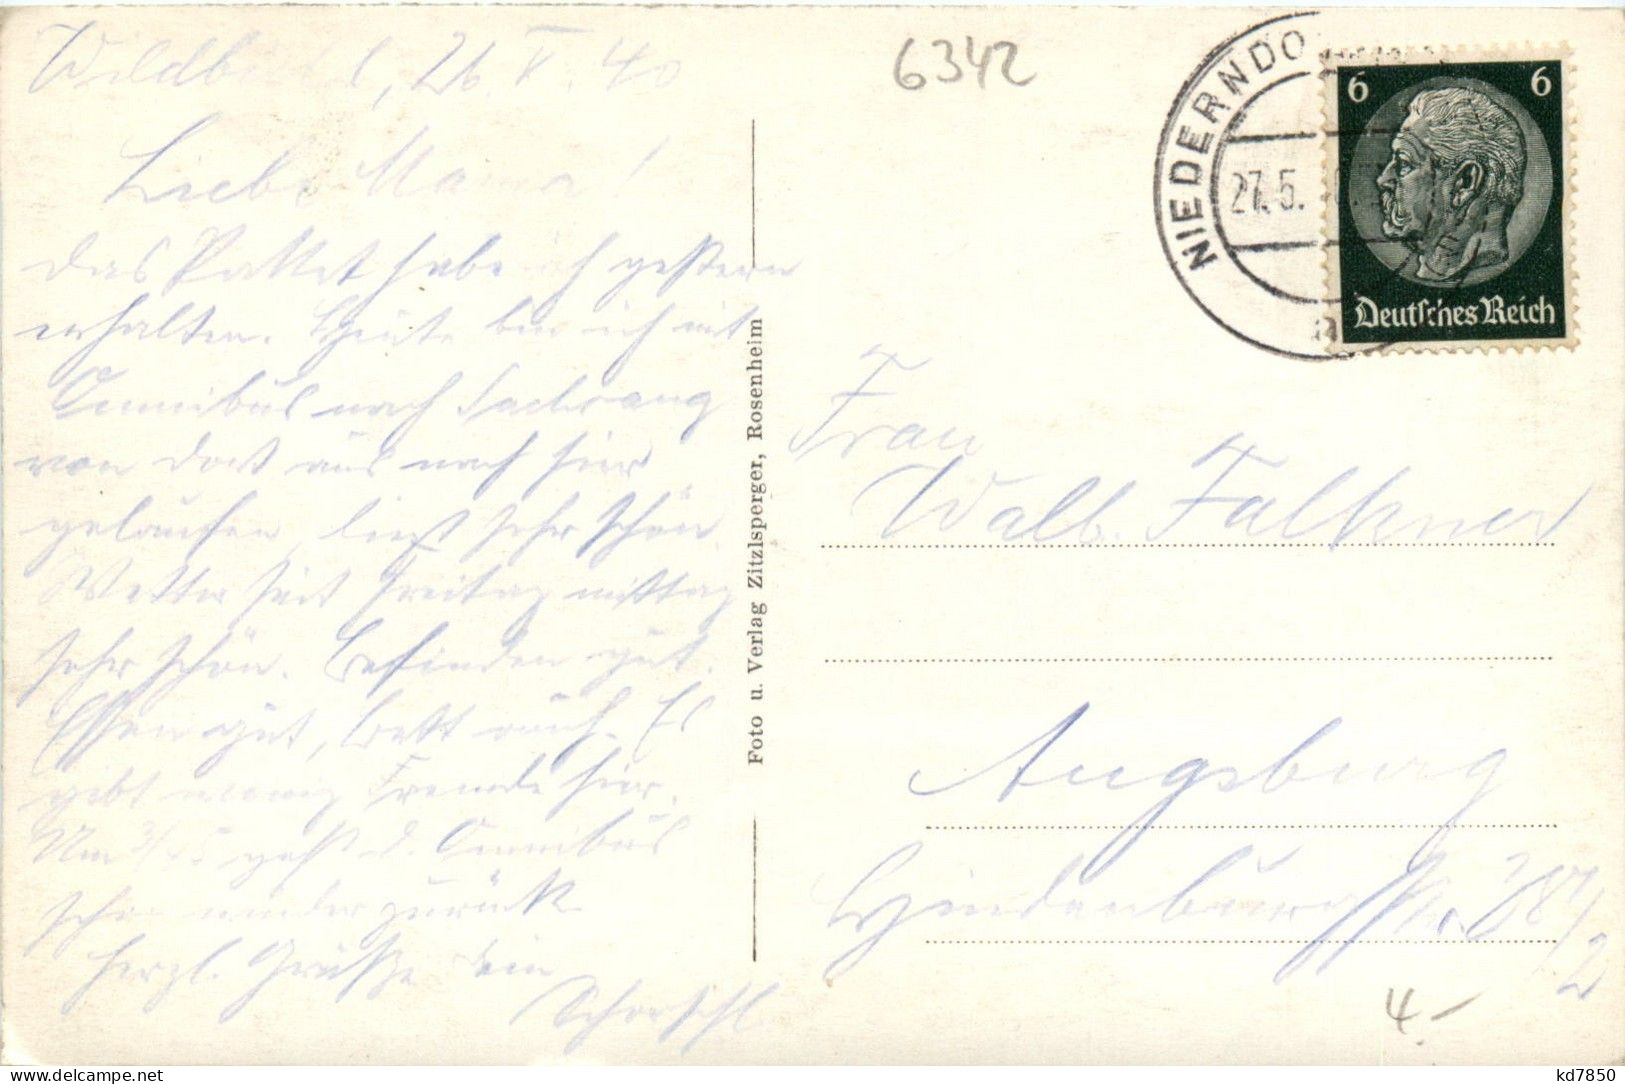 Wildbichl, 26. V. 40
Liebe Mama!
das Packet habe ich gestern
erhalten. Heute bin ich mit
Omnibus nach Sachrang
von dort aus nach hier
gelaufen, sehr schön
Wetter seit Freitag mittag
sehr schön. Befinden gut.
Essen gut, Bett auch. Es
gibt wenig Fremde hier.
Um geht d. Omnibus
schon wieder zurück
herzl. Grüße Dein
Schorschl
Foto u. Verlag Zitzlsperger, Rosenheim
6342
NIEDERNDO
27.5.
6 6
Deutsches Reich
Frau
Walb. Falkner
Augsburg
Hindenburgstr.
4.-
delcampe.net
kd7850